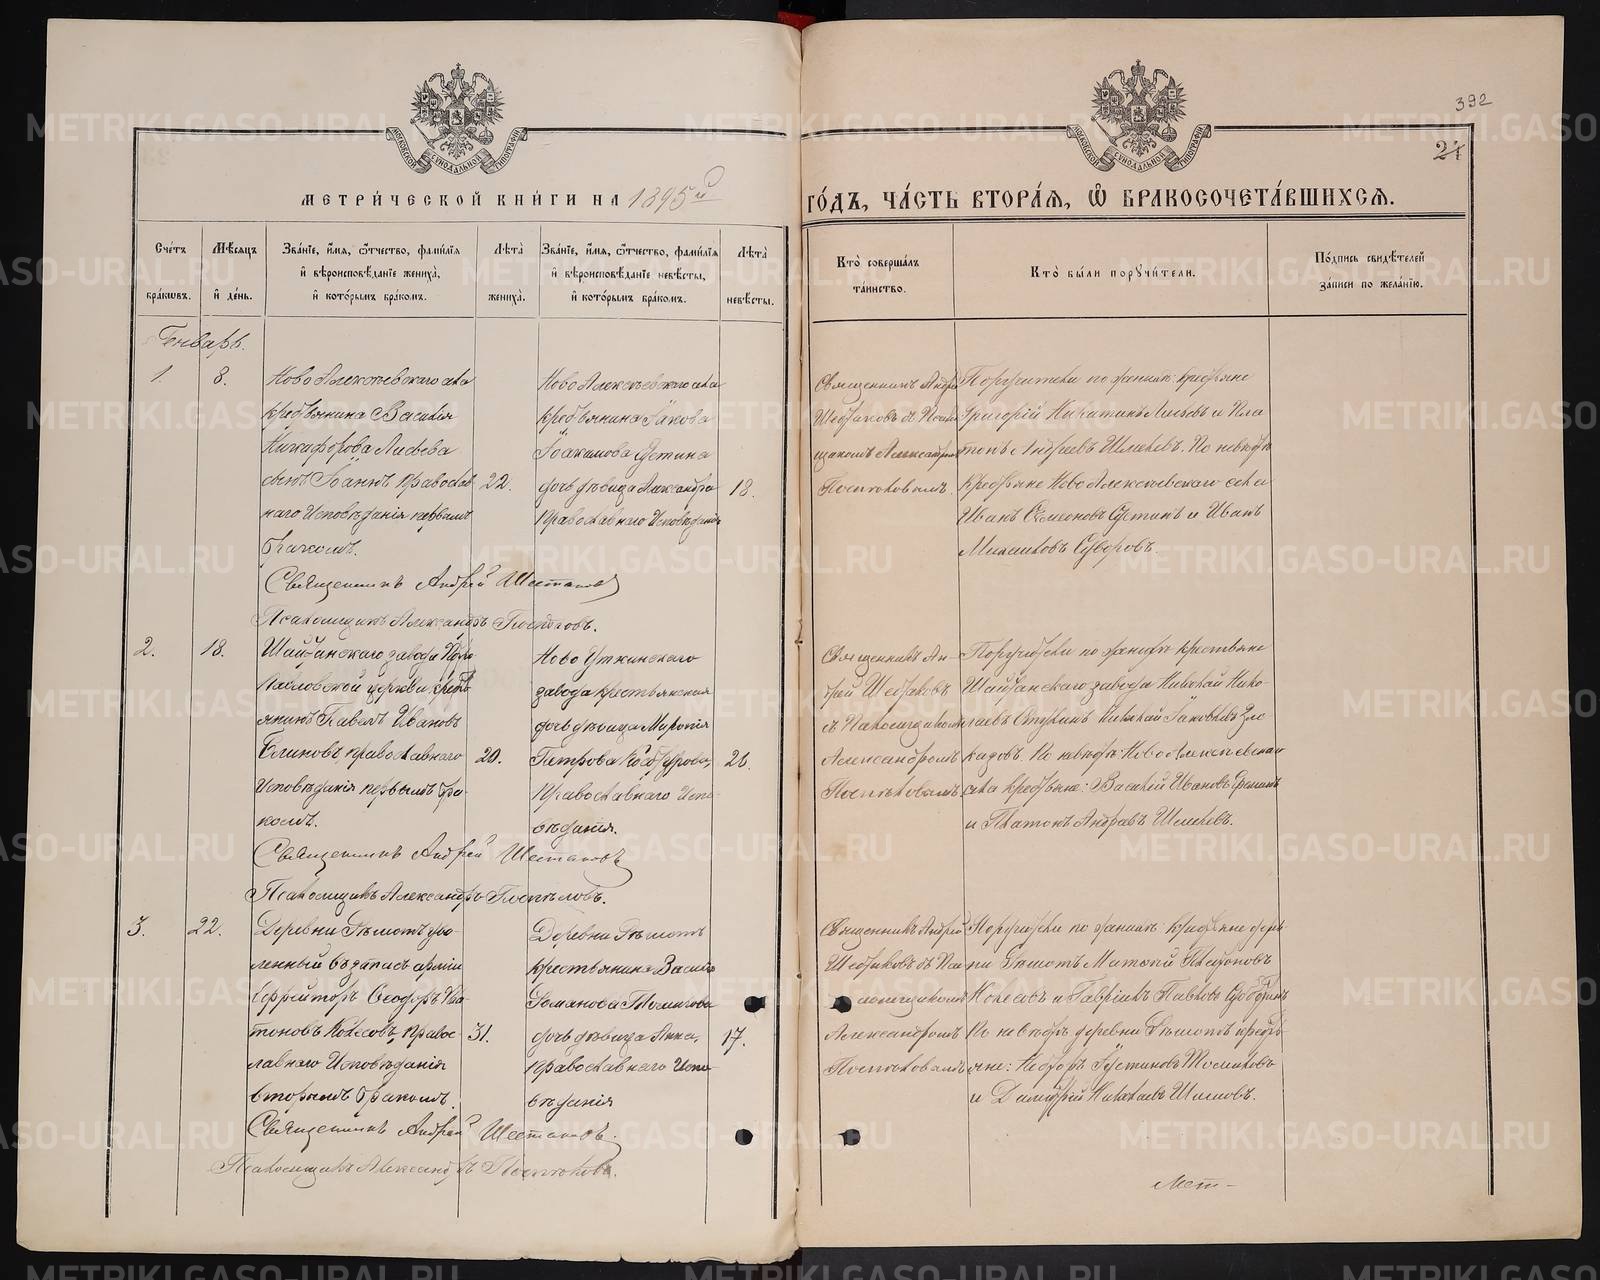 392
24
МЕТРИЧЕСКОЙ КНИГИ НА 1895й
ГОДЪ, ЧАСТЬ ВТОРАЯ, Ѡ БРАКОСОЧЕТАВШИХСЯ.
Счетъ браковъ.
Мѣсяцъ и день.
Званіе, имя, отчество, фамилія
и вѣроисповѣданіе жениха,
и которымъ бракомъ.
Лѣта жениха.
Званіе, имя, отчество, фамилія
и вѣроисповѣданіе невѣсты,
и которымъ бракомъ.
Лѣта невѣсты.
Кто совершалъ
таинство.
Кто были поручители.
Подпись свидѣтелей
записи по желанію.
Генварь.
1.
8.
Ново Алексѣевскаго села
крестьянина Василія
Никифорова
сынъ Іоаннъ Православ
наго Исповѣданія первымъ
бракомъ.
22.
Ново Алексѣевскаго села
крестьянина Іакова
Іоакимова Устина
дочь дѣвица Александра
Православнаго Исповѣданія
18.
Священникъ Андрей
Шестаковъ съ Псалом
щикомъ Александромъ
Поспѣловымъ.
Поручители по женихѣ: крестьяне
Григорій Никитинъ и Пла
тонъ Андреевъ Шмелевъ. По невѣстѣ
крестьяне Ново Алексѣевскаго села
Иванъ Семеоновъ Устинъ и Иванъ
Михаиловъ Суворовъ.
Священникъ Андрей Шестаковъ
Псаломщикъ Александръ Поспѣловъ.
2.
18.
Шайтанскаго завода Петро
Павловской церкви кресть
янинъ Павелъ Ивановъ
Блиновъ православнаго
Исповѣданія первымъ бра-
комъ.
20.
Ново Уткинскаго
завода крестьянская
дочь дѣвица
Петрова
Православнаго Испо-
вѣданія.
Священникъ Ан-
дрей Шестаковъ
съ Псаломщикомъ
Александромъ
Поспѣловымъ
Поручители по женихѣ крестьяне
Шайтанскаго завода Николай Нико-
лаевъ Николай Іаковлевъ
По невѣстѣ: Ново Алексѣевскаго
села крестьяне: Василій Ивановъ
и Платонъ Андреевъ Шмелевъ.
Священникъ Андрей Шестаковъ
Псаломщикъ Александръ Поспѣловъ.
3.
22.
Деревни уво-
ленный въ запасъ арміи
Ефрейторъ Ѳеодоръ Пла
тоновъ Колесовъ, Правос
лавнаго Исповѣданія
вторымъ бракомъ.
31.
Деревни
крестьянина Василія
Романова
дочь дѣвица Анна,
Православнаго Испо-
вѣданія
17.
Священникъ Андрей
Шестаковъ съ Пса
ломщикомъ
Александромъ
Поспѣловымъ
Поручители по женихѣ: крестьяне дерев
ни Платоновъ
Колесовъ и Гавріилъ Павловъ
По невѣстѣ деревни кресть-
яне:
и Димитрій Николаевъ
Священникъ Андрей Шестаковъ.
Псаломщикъ Александръ Поспѣловъ.
Мет-
METRIKI.GASO-URAL.RU